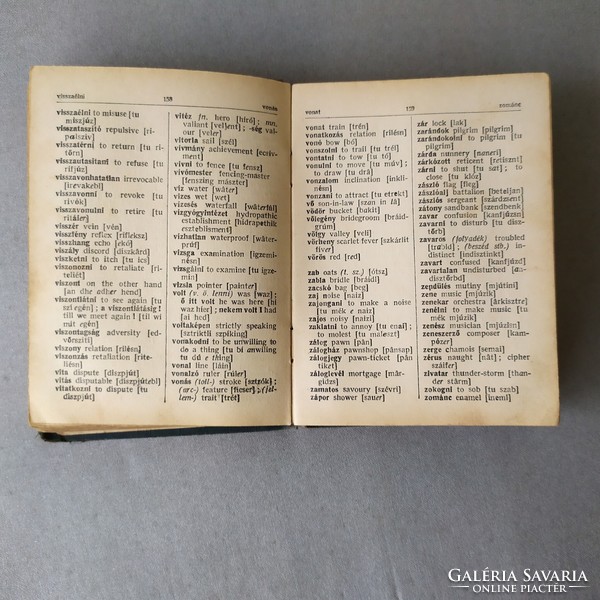 visszaélni
158
vonás
visszaélni to misuse [tu
miszjúz]
visszataszító repulsive [ri-
palsziv]
visszatérni to return [tu ri-
törn]
visszautasítani to refuse [tu
rifjúz]
visszavonhatatlan irrevocable
[irevəkebl]
visszavonni to revoke [tu
rivók]
visszavonulni to retire [tu
ritájer]
visszér vein [vén]
visszfény reflex [rifleksz]
visszhang echo [ekó]
viszály discord [diszkárd]
viszketni to itch [tu ics]
viszonozni to retaliate [tu
viszont on the other hand
[an dhe adher hend]
viszontlátni to see again [tu
szi egén]; a viszontlátásig!
till we meet again [till wi
mit egén]
viszontagság adversity [ed-
vörsziti]
viszony relation [rilésn]
viszonzás retaliation [rite-
liésn]
vita dispute [diszpjút]
vitás disputable [diszpjútebl]
vitatkozni to dispute [tu
diszpjút]
vitéz fn. hero [híró]; mn.
valiant [veljent]; -ség val-
our [veler]
vitorla sail [szél]
vívmány achievement [ecsív-
ment]
vívni to fence [tu fensz]
vívómester fencing-master
[fenszing mászter]
víz water [wåter]
vizes wet [wet]
vízesés waterfall [wåterfål]
vízgyógyintézet hydropathic
establishment [hidrapethik
eszteblisment]
vízhatlan waterproof [wåter-
prúf]
vizsga examination [egzemi-
nésn]
vizsgálni to examine [tu igze-
min]
vizsla pointer [pojnter]
volt (v. ö. lenni) was [waz];
ő itt volt he was here [hi
waz hier]; nekem volt I had
[aj hed]
voltaképen strictly speaking
[sztriktli szpíking]
vonakodni to be unwilling to
do a thing [tu bi anwiling
tu dú e thing]
vonal line [lájn]
vonalzó ruler [rúler]
vonás (toll-) stroke [sztrók];
(arc-) feature [fícser]; (jel-
lem-) trait [tré]
vonat
159
zománc
vonat train [trén]
vonatkozás relation [rilésn]
vonó bow [bó]
vonszolni to trail [tu trél]
vontatni to tow [tu tó]
vonulni to move [tu múv];
to draw [tu drå]
vonzalom inclination [inkli-
nésn]
vonzani to attract [tu etrekt]
vő son-in-law [szan in lå]
vödör bucket [bakit]
vőlegény bridegroom [brájd-
grúm]
völgy valley [veli]
vörheny scarlet fever [szkárlit
fíver]
vörös red [red]
zab oats (t. sz.) [ótsz]
zabla bridle [brájdl]
zacskó bag [beg]
zaj noise [nojz]
zajongani to make a noise
[tu mék e nojz]
zajos noisy [nojzi]
zaklatni to annoy [tu enoj];
to molest [tu moleszt]
zálog pawn [pån]
zálogház pawnshop [pånsap]
zálogjegy pawn-ticket [pån
tiket]
záloglevél mortgage [mår-
gidzs]
zamatos savoury [szévri]
zápor shower [sauer]
zár lock [lak]
zarándok pilgrim [pilgrim]
zarándokolni to pilgrim [tu
pilgrim]
zárda nunnery [naneri]
zárkózott reticent [retiszent]
zárni to shut [tu sat]; to
close [tu klóz]
zászló flag [fleg]
zászlóalj battalion [beteljen]
zászlós sergeant [szárdzsent]
zátony sandbank [szendbenk]
zavar confusion [kanfjúzsn]
zavarni to disturb [tu disz-
törb]
zavaros (folyadék) troubled
[trabld]; (beszéd stb.) in-
distinct [indisztinkt]
zavart confused [kanfjúzd]
zavartalan undisturbed [an-
disztörbd]
zendülés mutiny [mjútini]
zene music [mjúzik]
zenekar orchestra [árkisztre]
zenélni to make music [tu
mék mjúzik]
zenész musician [mjúzisn]
zeneszerző composer [kam-
pózer]
zerge chamois [semai]
zérus naught [nåt]; cipher
szájfer]
zivatar thunder-storm [than-
der stårm]
zokogni to sob [tu szab]
zománc enamel [inemi]
GALÉRIA SAVARIA
ONLINE PIACTÉR